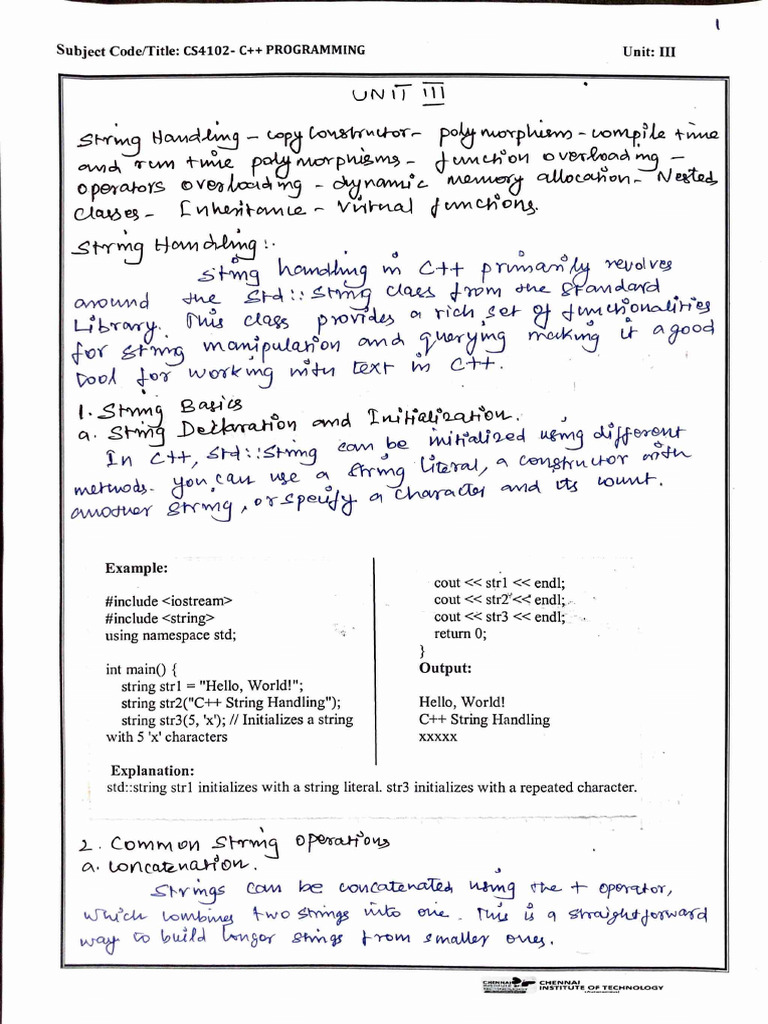 1
Subject Code/Title: CS4102- C++ PROGRAMMING Unit: III
UNIT III
String Handling - copy Constructor - polymorphism - compile time
and run time polymorphisms - function overloading -
operators overloading - dynamic memory allocation - Nested
Classes - Inheritance - Virtual functions.
String Handling:.
String handling in C++ primarily revolves
around the Std::String class from the Standard
Library. This class provides a rich set of functionalities
for string manipulation and querying making it a good
tool for working with text in C++.
1. String Basics
a. String Declaration and Initialization.
In C++, std::String can be initialized using different
methods. you can use a string literal, a constructor with
another string, or specify a character and its count.
Example:
#include <iostream>
#include <string>
using namespace std;
int main() {
string str1 = "Hello, World!";
string str2("C++ String Handling");
string str3(5, 'x'); // Initializes a string
with 5 'x' characters
cout << str1 << endl;
cout << str2 << endl;
cout << str3 << endl;
return 0;
}
Output:
Hello, World!
C++ String Handling
xxxxx
Explanation:
std::string str1 initializes with a string literal. str3 initializes with a repeated character.
2. Common String Operations
a. Concatenation.
Strings can be concatenated using the + operator,
which combines two strings into one. This is a straightforward
way to build longer strings from smaller ones.
CHENNAI
INSTITUTE OF TECHNOLOGY